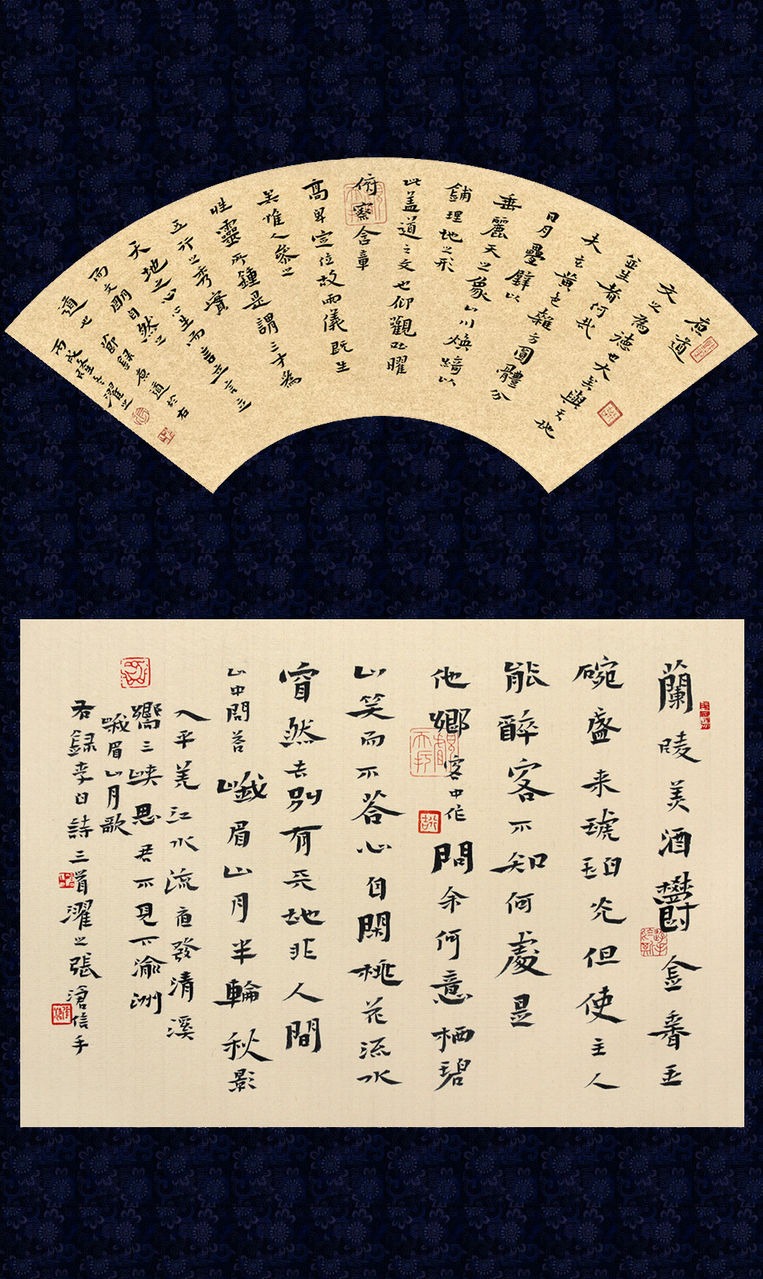 原道
文之為德也大矣與天地
並生者何哉
夫玄黃色雜方圓體分
日月疊璧以
垂麗天之象山川煥綺以
鋪理地之形
此蓋道之文也仰觀吐曜
俯察含章
高卑定位故兩儀既生
矣惟人參之
性靈所鍾是謂三才為
五行之秀實
天地之心心生而言立言立
而文明自然之
道也
節錄原道於右
丙戌隆冬濯之
蘭陵美酒鬱金香玉
碗盛来琥珀光但使主人
能醉客不知何處是
他鄉 客中作 問余何意栖碧
山笑而不答心自閑桃花流水
窅然去別有天地非人間
山中問答 峨眉山月半輪秋影
入平羌江水流夜發清溪
嚮三峽思君不見下渝洲
峨眉山月歌
右錄李白詩三首濯之張滄信手